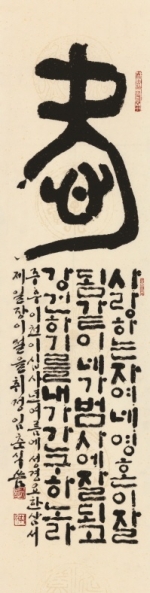 사랑하는자여네영혼이잘
됨같이네가범사에잘되고
강건하기를내가간구하노라
주후이천이십사년여름에성경요한삼서
제일장이절을취정임춘식